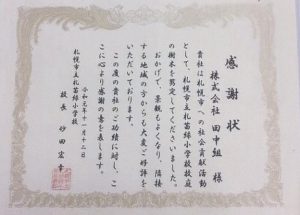 感謝状
株式会社 田中組 様
貴社は札幌市への社会貢献活動
として、札幌市立札苗緑小学校校庭
の樹木を剪定してくださいました。
おかげで、景観もよくなり、隣接
する地域の方からも大変ご好評を
いただいております。
この度の貴社のご功績に対し、こ
こに心より感謝の意を表します。
令和元年十一月十二日
札幌市立札苗緑小学校
校長 砂田 宏幸